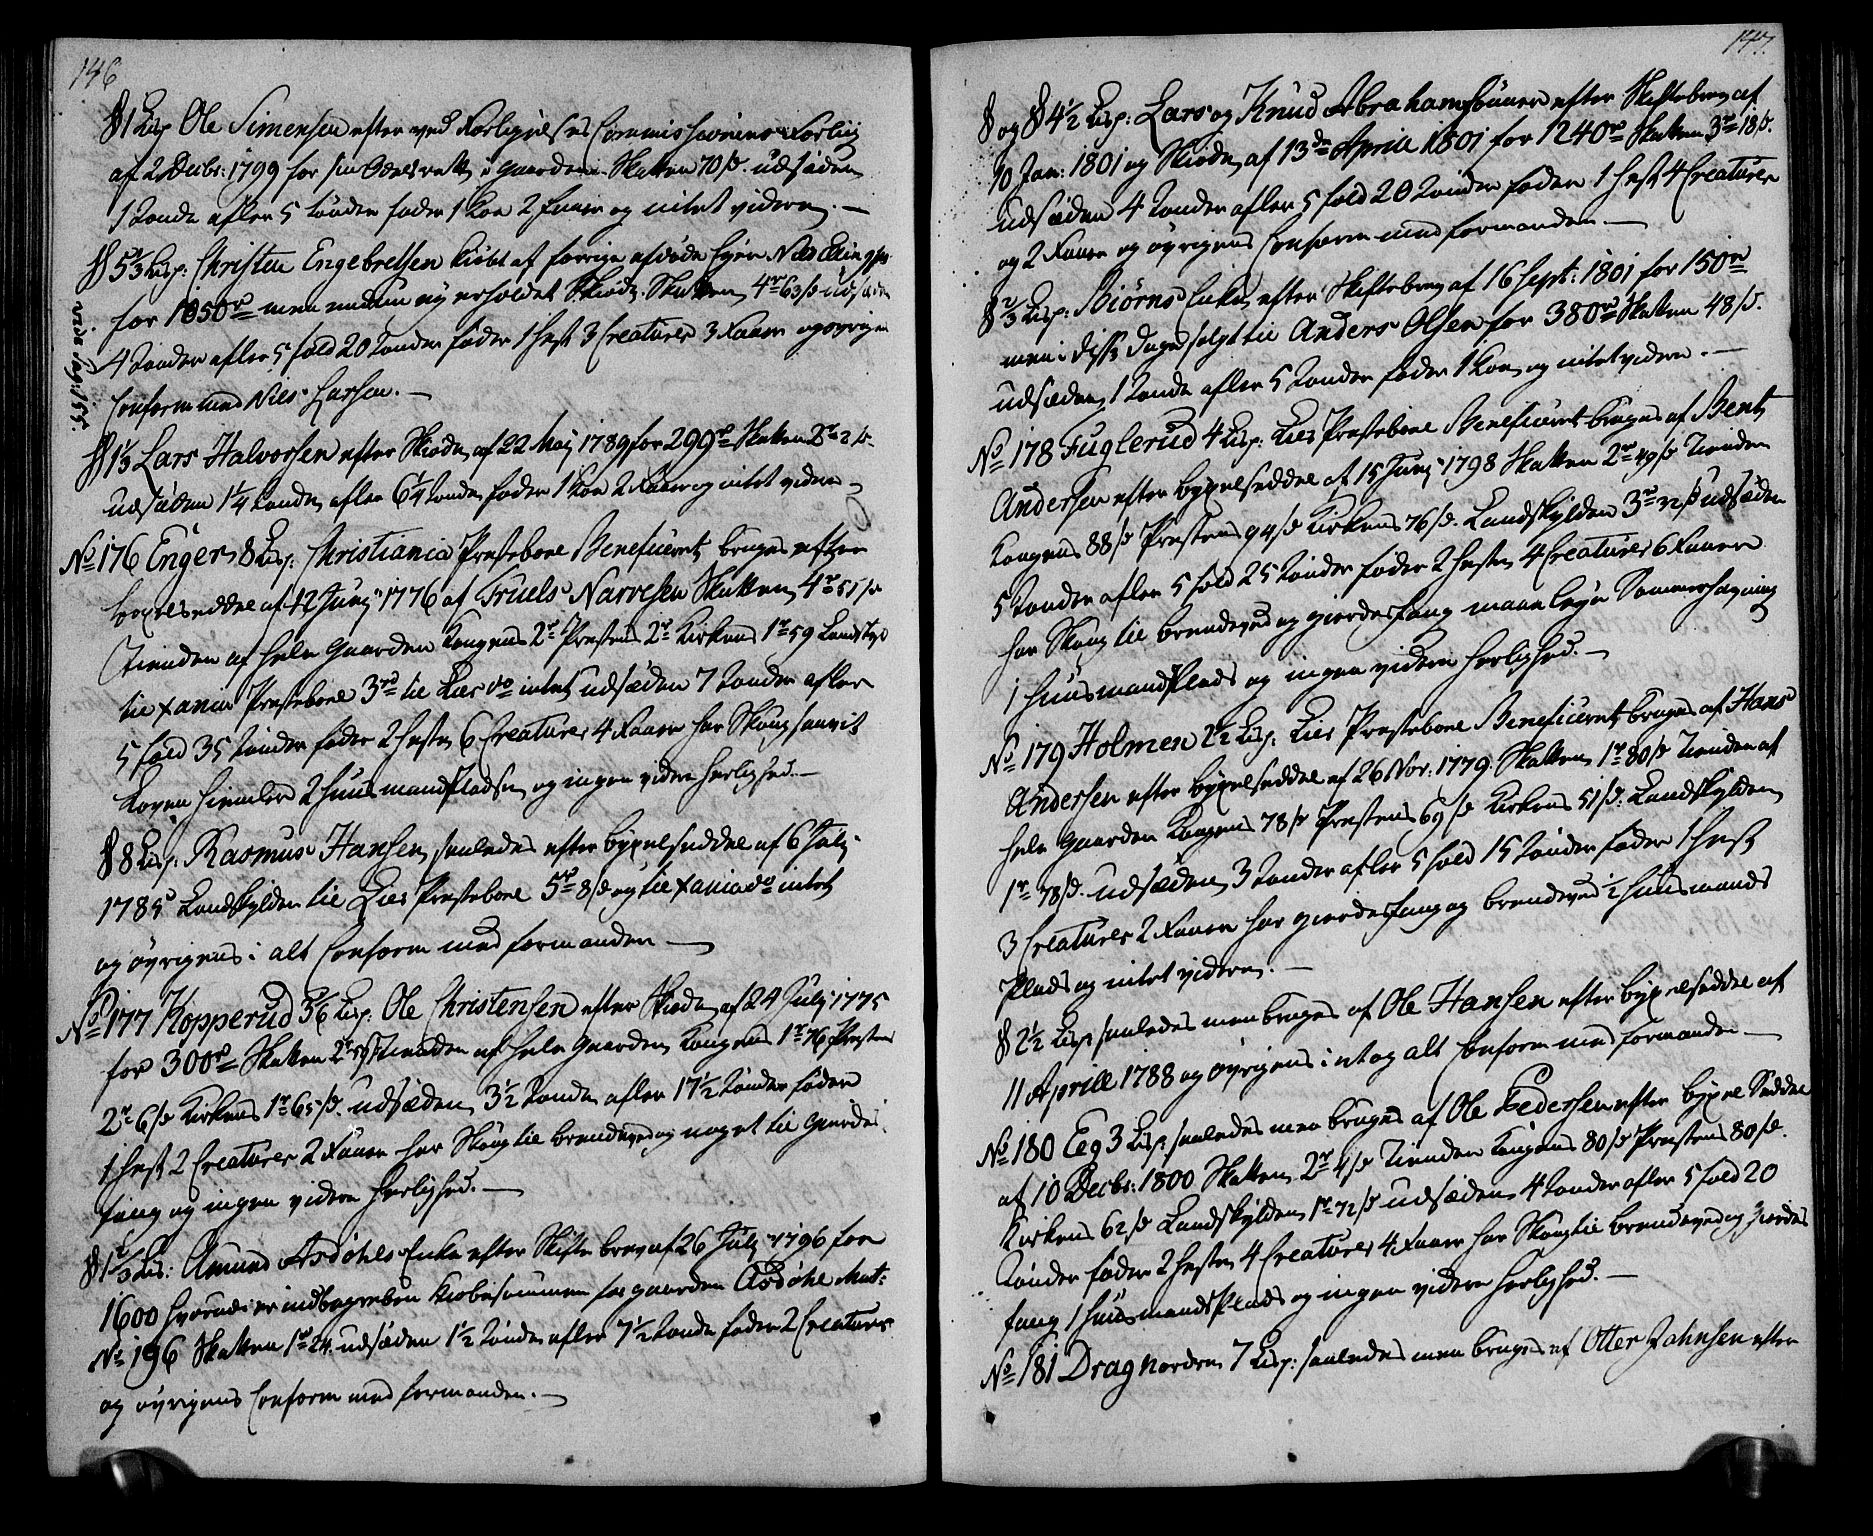 146
§ 1 Lisp Ole Simensen efter ved Forligelses Commissionens Forliig
af 2 Decbr: 1799 for sin Odelsrett i gaarden Skatten 70 s. udsæden
1 Tønde afler 5 tønder føder 1 Koe 2 faaer og intet videre. —
§ 5⅔ Lisp: Christen Engebretsen kiøbt af forrige afdøde Eyere Niels Ellingsen
for 1850 rd men endnu ey erholdet Skiøde, Skatten 4 rd 63 s udsæden
4 tønder afler 5 fold 20 tønder føder 1 Hest 3 Creaturer 3 Faaer og øvrigen
Conform med Niels Larsen. —
vide Pag: 155.
§ 1⅓ Lars Halvorsen efter Skiøde af 22 Maj 1789 for 299 rd Skatten 2 rd 2 s.
udsæden 1¼ tønde, afler 6¼ tønde føder 1 Koe 2 Faaer og intet videre
No 176 Enger 8 Lisp: Christiania Præstebord Beneficeret bruges efter
bøxelseddel af 12 Junj 1776 af Truels Narvesen Skatten 4 rd 55 s
Tienden af hele Gaarden Kongens 2 rd Præstens 2 rd Kirkens 1 rd 59 Landskyld
til Xania Præstebord 3 rd til Lier do intet udsæden 7 tønder afler
5 fold 35 tønder føder 2 Heste 6 Creaturer 4 Faaer har Skoug saavit
Loven hiemler 2 huusmandsPladser og ingen videre herlighed. —
§ 8 Lisp: Rasmus Hansen saaledes efter bøxelseddel af 6 Julj
1785 Landskylden til Lier Præstebord 5 rd 8 s og til Xania do intet
og øvrigens i alt Conform med formanden —
No 177 Kopperud 3⅚ Lisp: Ole Christensen efter Skiøde af 24 Julj 1775
for 300 rd Skatten 2 rd 59 s Tienden af hele Gaarden Kongens 1 rd 76 s Præstens
2 rd 6 s Kirkens 1 rd 65 s. udsæden 3½ tønde afler 17½ tønder føder
1 Hest 2 Creaturer 2 Faaer har Skoug til brendeved og noget til gierdes
fang og ingen videre Herlighed. —
§ 1⅓ Lis: Amund Asdøhls Enke efter Skifte brev af 26 Julj 1796 for
1600 hvorudi er indbegreben kiøbesummen for gaarden Asdøhl Mat:
No 196 Skatten 1 rd 24. udsæden 1½ tønde afler 7½ tønde føder 2 Creaturer
og øvrigens Conform med formanden. —
147.
§ og § 4½ Lisp: Lars og Knud Abrahamsønner efter Skiftebrev af
10 Jan: 1801 og Skiøde af 13de Aprill 1801 for 1240 rd Skatten 3 rd 18 s.
udsæden 4 tønder afler 5 fold 20 tønder føder 1 hest 4 Creaturer
og 2 Faaer og øvrigens Conform med formanden. —
§ ⅔ Lisp: Biørns Enke efter Skiftebrev af 16 Sept: 1801 for 150 rd
men i disse dage solgt til Anders Olsen for 380 rd Skatten 48 s.
udsæden 1 tønde afler 5 tønder føder 1 Koe og intet videre. —
No 178 Fuglerud 4 Lisp: Lier Præstebord Beneficeret bruges af Bent
Andersen efter bøxelseddel af 15 Junj 1798 Skatten 2 rd 49 s Tienden
Kongens 88 s Præstens 94 s Kirkens 76 s. Landskylden 3 rd 72 s udsæden
5 tønder afler 5 fold 25 tønder føder 2 heste 4 Creaturer 6 Faaer
har Skoug til brendeved og gierdesfang maa leye Sommerhavning
1 huusmandsPlads og ingen videre herlighed. —
No 179 Holmen 2½ Lisp: Lier Præstebord Beneficeret bruges af Hans
Andersen efter bøxelseddel af 26 Nov: 1779. Skatten 1 rd 80 s Tienden af
hele gaarden Kongens 78 s Præstens 69 s Kirkens 51 s: Landskylden
1 rd 78 s. udsæden 3 tønder afler 5 fold 15 tønder føder 1 hest
3 Creaturer 2 Faaer har gierdesfang og brendeved ½ huusmands
Plads og intet videre. —
§ 2½ Lisp saaledes men bruges af Ole Hansen efter bøxelseddel af
11 Aprill 1788 og øvrigens i et og alt Conform med formanden —
No 180 Eeg 3 Lisp. saaledes men bruges af Ole Pedersen efter bøxel Seddel
af 10 Decbr: 1800 Skatten 2 rd 4 s Tienden Kongens 80 s Præstens 80 s.
Kirkens 62 s Landskylden 1 rd 72 s udsæden 4 tønder afler 5 fold 20
tønder føder 2 heste 4 Creaturer 4 Faaer har Skoug til brendeved og gierdes
fang 1 huusmandsPlads og ingen videre herlighed. —
No 181 Drag nordre 7 Lisp: saaledes men bruges af Otter Johnsen efter